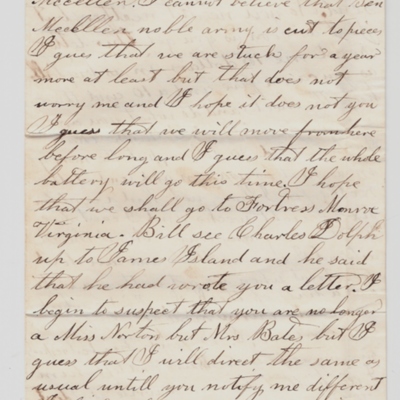 McCellen. I cannot believe that Gen
Mccellen noble army is cut to pieces
I gues that we are stuck for a year
more at least but that does not
worry me and I hope it does not you
I guess that we will move from here
before long and I guess that the whole
battery will go this time. I hope
that we shall go to Fortress Monroe
Virginia. Bill see Charles Dolph
up to James Island and he said
that he had wrote you a letter. I
begin to suspect that you are no longer
a Miss Norton but Mrs Bates but I
guess that I will direct the same as
usual untill you notify me different